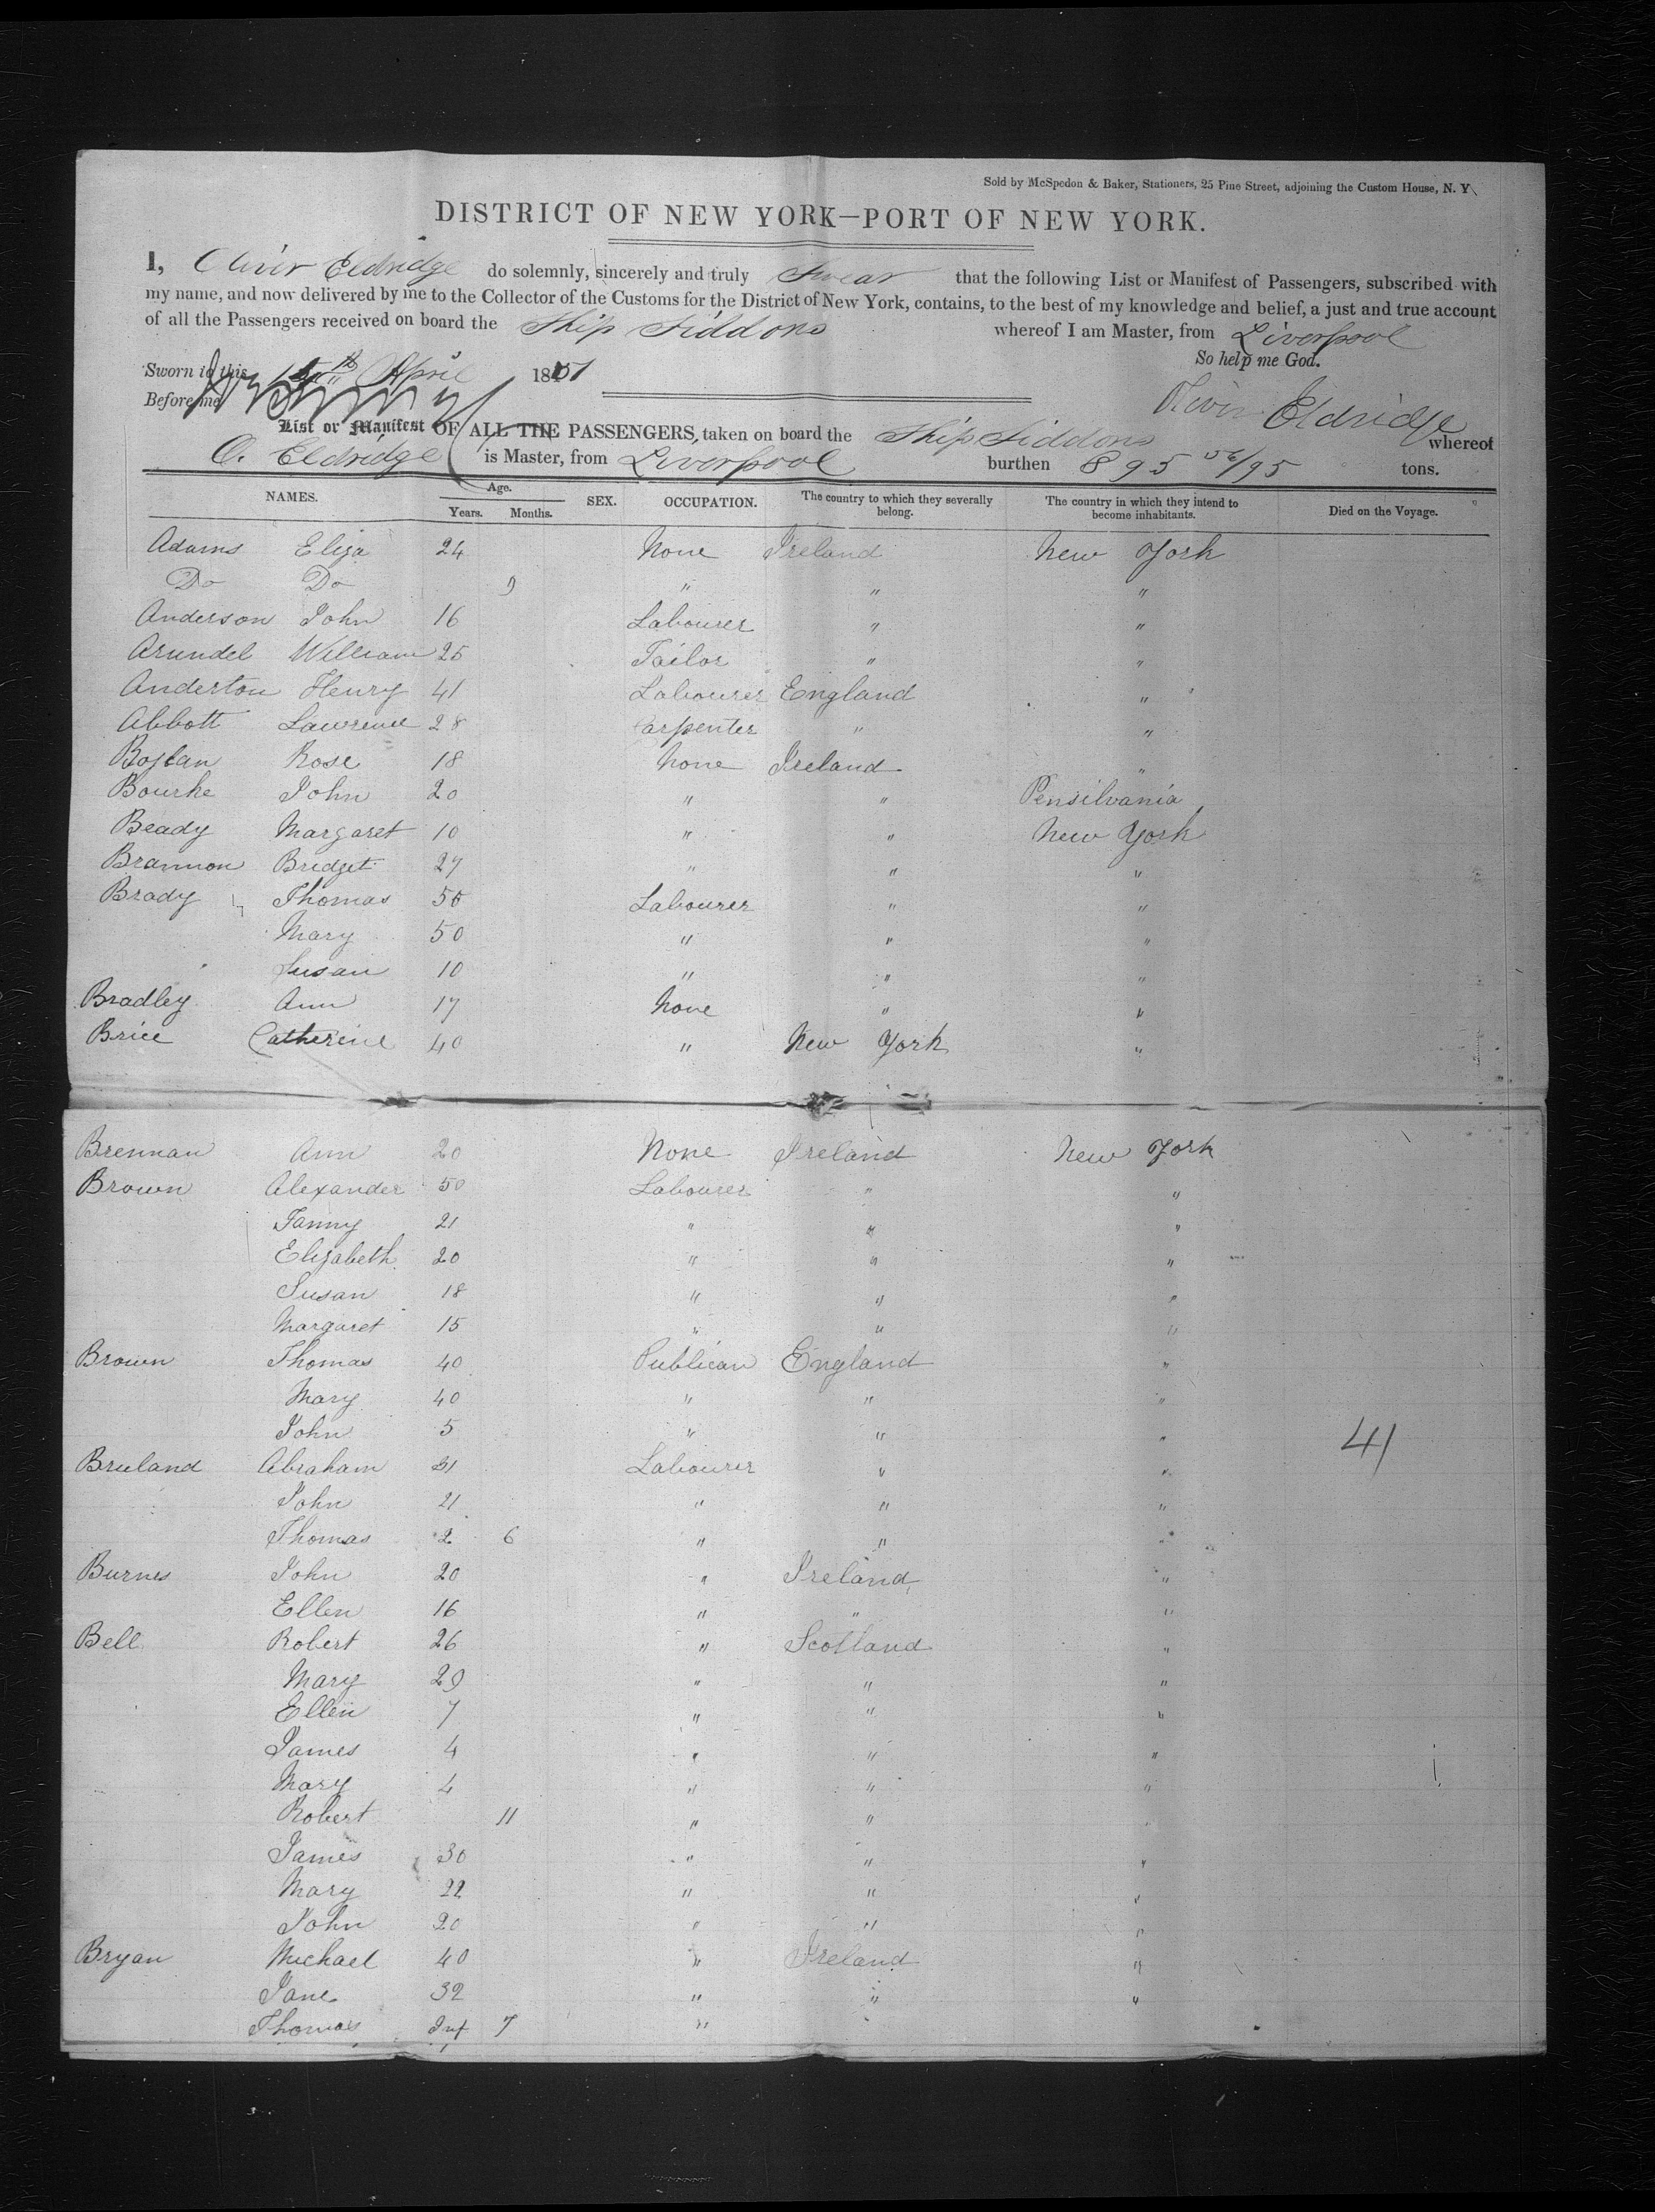 Sold by McSpedon & Baker, Stationers, 25 Pine Street, adjoining the Custom House, N. Y.
DISTRICT OF NEW YORK—PORT OF NEW YORK.
I, Oliver Eldridge do solemnly, sincerely and truly Swear that the following List or Manifest of Passengers, subscribed with
my name, and now delivered by me to the Collector of the Customs for the District of New York, contains, to the best of my knowledge and belief, a just and true account
of all the Passengers received on board the Ship Siddons whereof I am Master, from Liverpool
So help me God.
Sworn to this April 1851
Before me
Oliver Eldridge
List or Manifest OF ALL THE PASSENGERS, taken on board the Ship Siddons whereof
O. Eldridge is Master, from Liverpool burthen 895 /95 tons.
NAMES. Age. Years. Months. SEX. OCCUPATION. The country to which they severally belong. The country in which they intend to become inhabitants. Died on the Voyage.
Adams Eliza 24 None Ireland New York
Do Do 9 " " "
Anderson John 16 Labourer " "
Arundel William 25 Tailor " "
Anderton Henry 41 Labourer England "
Abbott Lawrence 28 Carpenter " "
Boylan Rose 18 None Ireland "
Bourke John 20 " " Pensilvania
Beady Margaret 10 " " New York
Brannon Bridget 27 " " "
Brady Thomas 55 Labourer " "
Mary 50 " " "
Susan 10 " " "
Bradley Ann 17 None " "
Brice Catherine 40 " New York "
Brennan Ann 20 None Ireland New York
Brown Alexander 50 Labourer " "
Fanny 21 " " "
Elizabeth 20 " " "
Susan 18 " " "
Margaret 15 " " "
Brown Thomas 40 Publican England "
Mary 40 " " "
John 5 " " "
41
Bruland Abraham 31 Labourer " "
John 21 " " "
Thomas 2 6 " " "
Burnes John 20 " Ireland "
Ellen 16 " " "
Bell Robert 26 " Scotland "
Mary 29 " " "
Ellen 7 " " "
James 4 " " "
Mary 4 " " "
Robert 11 " " "
James 30 " " "
Mary 22 " " "
John 20 " " "
Bryan Michael 40 " Ireland "
Jane 32 " " "
Thomas Inf 7 " "